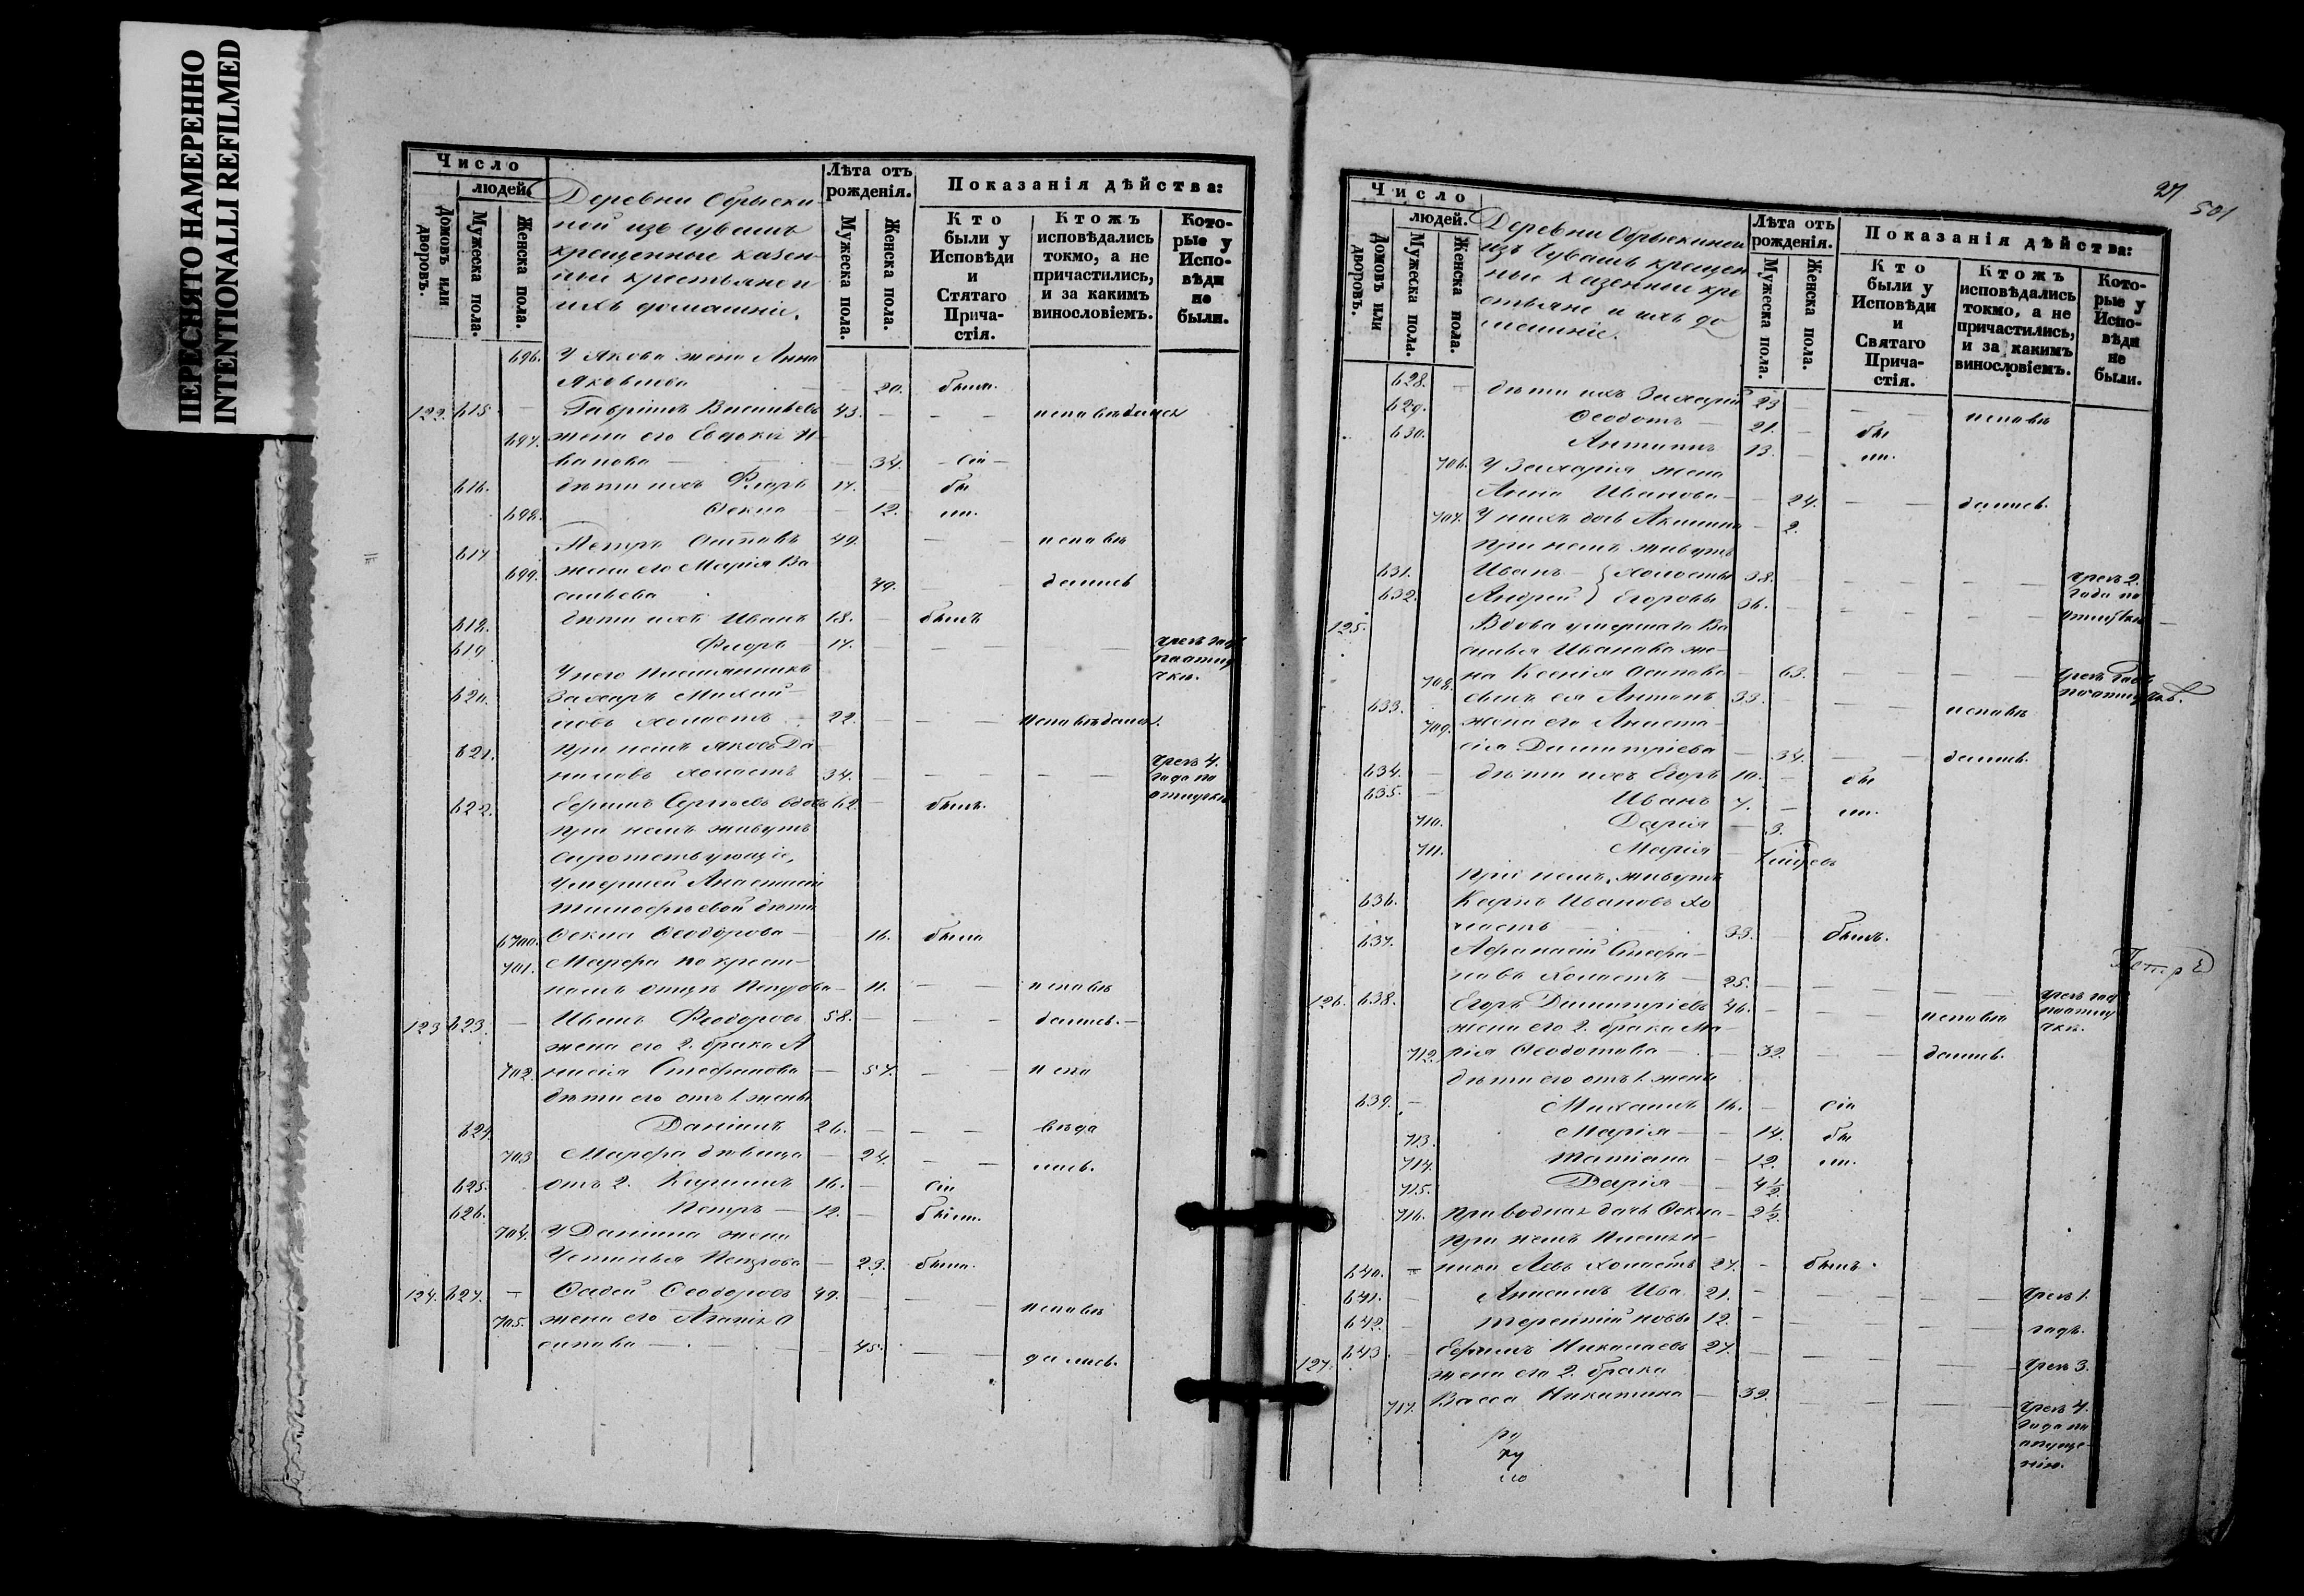 ПЕРЕСНЯТО НАМЕРЕННО
INTENTIONALLI REFILMED
Число
людей
Домовъ или дворовъ.
Мужеска пола.
Женска пола.
Деревни
ной изъ чувашъ
крещенные казен-
ные крестьяне и
ихъ домашніе.
Лѣта отъ рожденія.
Мужеска пола.
Женска пола.
Показанія дѣйства:
Кто были у Исповѣди и Стятаго Прича-стія.
Ктожъ исповѣдались токмо, а не причастились, и за какимъ винословіемъ.
Кото-рые у Испо-вѣди не были.
696. У Якова жена Анна
Яковлева — 20. была.
122. 615 — Гавріилъ Васильевъ 43. — — — исповѣдались
697. жена его Евдокія И-
ванова — — 34. — сіи —
616. дѣти ихъ Флоръ 17. бы
698. Ѳекла — 12. ли.
617 Петръ Осиповъ 49. — — исповѣ
699. жена его Марія Ва
сильева 49. — дались
618. дѣти ихъ Иванъ 18. — былъ
619 Флоръ — 17. — — — — чрезъ годъ
У него племянникъ по отлу
620. Захаръ Михай- чки.
ловъ холостъ 22. — — — исповѣдался.
621. При немъ Яковъ Да
ниловъ холостъ 34. — — — — чрезъ 4.
года по
622. Ефимъ Сергѣевъ вдовъ 62. — былъ. отлучкѣ
При немъ живутъ
сиротствующіе,
умершей Анастасіи
Тимофѣевой дѣти
6700. Ѳекла Ѳеодорова — 16. была
701. Марѳа по крест-
номъ отцѣ Петрова — 11. — — исповѣ
123 623. — Иванъ Феодоровъ 58. — — — дались. —
жена его 2. брака А
702. нисія Стефанова — 57. — — испо
дѣти его отъ 1. жены
624. Даніилъ 26. — — — вѣда
703 Марѳа дѣвица — 24. — — лись.
625. отъ 2. Кириллъ 16. — сіи
626. Петръ — 12. — были.
704. У Даніила жена
Устинья Петрова — 23. была.
124. 627. — Ѳадей Ѳеодоровъ 49. — — — исповѣ
705. жена его Агапія О
сипова — — 45. — — дались.
27
501
Число
людей.
Домовъ или дворовъ.
Мужеска пола.
Женска пола.
Деревни
изъ Чувашъ крещен
ные казенные кре
стьяне и ихъ до
машніе.
Лѣта отъ рожденія.
Мужеска пола.
Женска пола.
Показанія дѣйства:
Кто были у Исповѣди и Святаго Прича-стія.
Ктожъ исповѣдались токмо, а не причастились, и за какимъ винословіемъ.
Кото-рые у Испо-вѣди не были.
628. — дѣти ихъ Захарій 23 — — — исповѣ
629. Ѳеодотъ — 21. — бы
630. Антипъ 13. — ли.
706. У Захарія жена
Анна Иванова — — 24. — — дались.
707. У нихъ дочь Акилина — 2.
При немъ живутъ
631. Иванъ — } холосты 38. — — — — чрезъ 2.
632. Андрей } Егоровы 36. — — — — года по
отлучкѣ —
125. Вдова умершаго Ва
силья Иванова же-
708. на Ксенія Осипова — 63. — — — — чрезъ годъ
633. сынъ ея Антонъ 33. — — — исповѣ по отлучкѣ.
709. жена его Анаста-
сія Димитріева — 34. — — дались.
634. — дѣти ихъ Егоръ 10. — бы
635. — Иванъ 7. — ли.
710. Дарія — 3.
711. Марія —
При немъ живутъ
636. Карпъ Ивановъ хо
лостъ — 33. — былъ.
637. Аѳанасій Стефа-
новъ холостъ — 25. — — — — чрезъ год
Петръ
126. 638. Егоръ Димитріевъ 46. — — — исповѣ по отлу
жена его 2. брака Ма- чки.
712. рія Ѳеодотова — — 32. — — дались.
дѣти его отъ 1. жены
639. — Михаилъ 16. — сіи
713. Марія — — 14. бы
714. Татіана — 12. ли.
715. Дарія — — 4½
716. приводная дочь Ѳекла — 2½
При немъ племян-
640. — ники Левъ холостъ 27. — былъ.
641. — Анисимъ Ива 21. — — — — чрезъ 1.
642. Терентій новы 12. — — — — годъ.
127. 643 — Ефимъ Николаевъ 27. — — — — чрезъ 3.
жена его 2. брака
717. Васса Никитина — 32. — — — — чрезъ 4.
года по
опуще-
нію.
ру
ку
ю